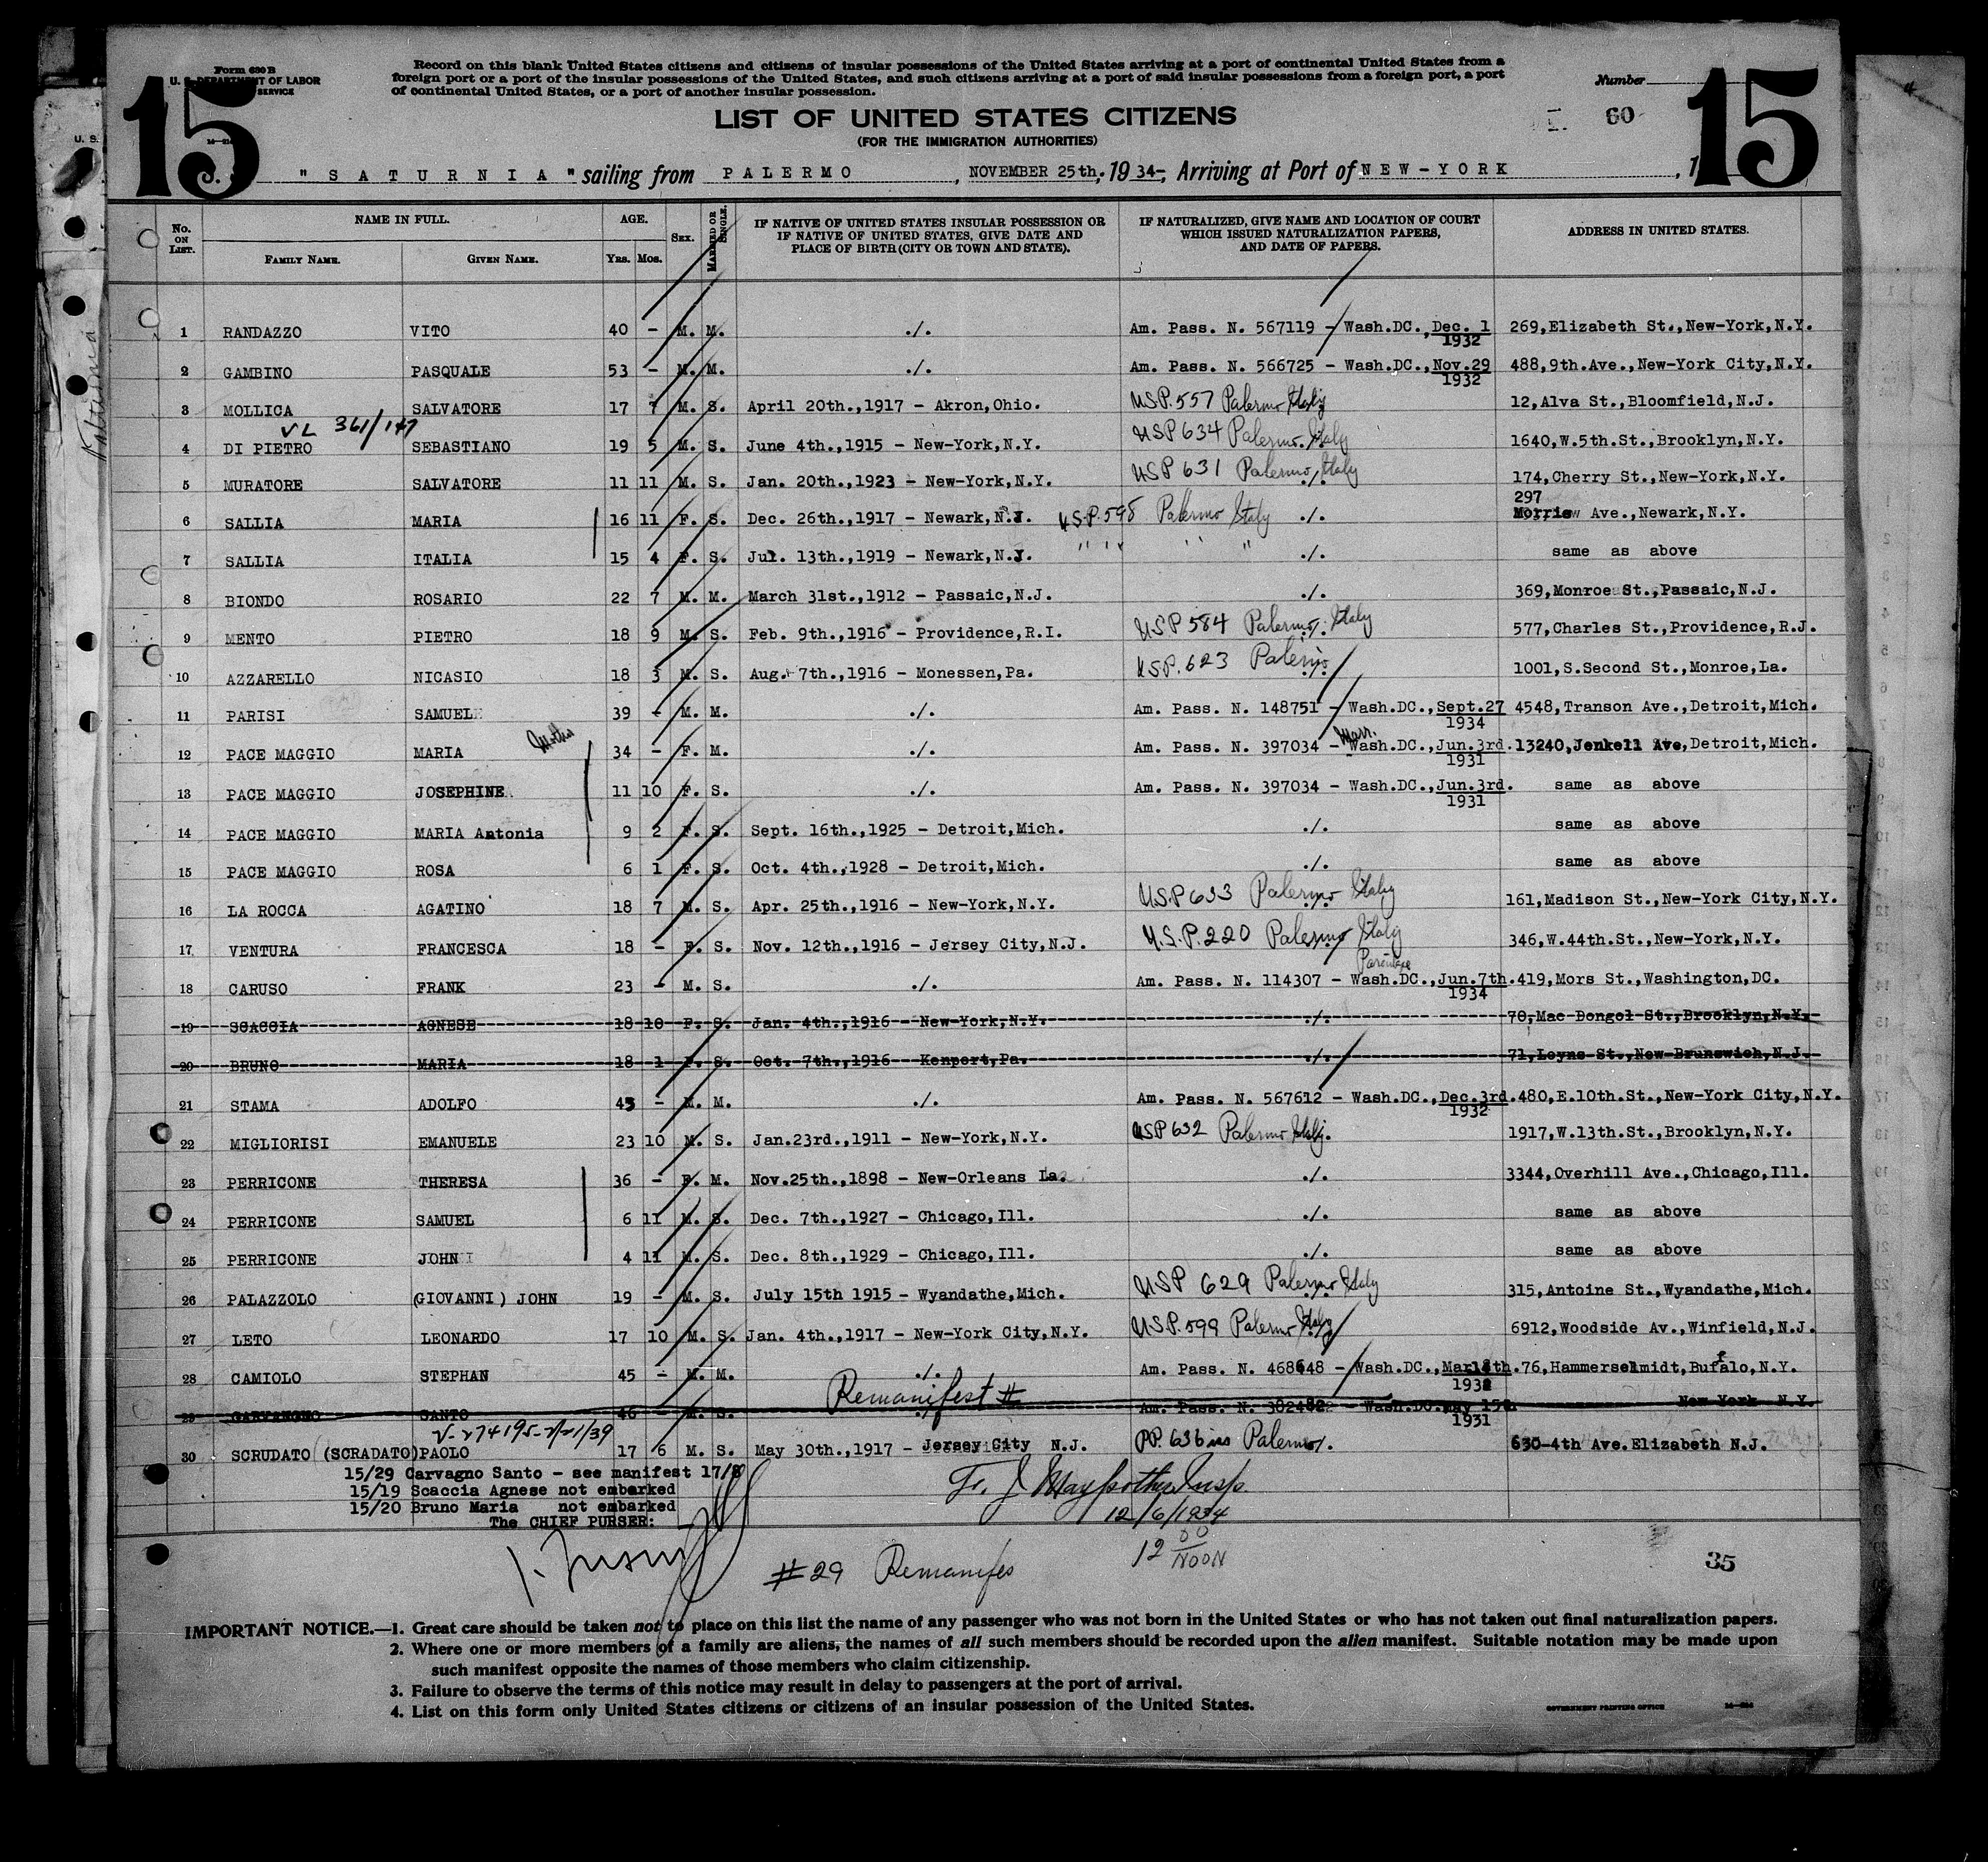 Form 630 B
U. S. DEPARTMENT OF LABOR
SERVICE
15
Record on this blank United States citizens and citizens of insular possessions of the United States arriving at a port of continental United States from a
foreign port or a port of the insular possessions of the United States, and such citizens arriving at a port of said insular possessions from a foreign port, a port
of continental United States, or a port of another insular possession.
Number
15
LIST OF UNITED STATES CITIZENS
60
(FOR THE IMMIGRATION AUTHORITIES)
"SATURNIA" sailing from PALERMO, NOVEMBER 25th, 1934-, Arriving at Port of NEW-YORK, 1
No. ON LIST. NAME IN FULL. AGE. SEX. MARRIED OR SINGLE. IF NATIVE OF UNITED STATES INSULAR POSSESSION OR IF NATIVE OF UNITED STATES, GIVE DATE AND PLACE OF BIRTH (CITY OR TOWN AND STATE). IF NATURALIZED, GIVE NAME AND LOCATION OF COURT WHICH ISSUED NATURALIZATION PAPERS, AND DATE OF PAPERS. ADDRESS IN UNITED STATES.
FAMILY NAME. GIVEN NAME. YRS. MOS.
1 RANDAZZO VITO 40 - M. M. ./. Am. Pass. N. 567119 - Wash.DC., Dec. 1 1932 269,Elizabeth St.,New-York,N.Y.
2 GAMBINO PASQUALE 53 - M. M. ./. Am. Pass. N. 566725 - Wash.DC., Nov.29 1932 488,9th.Ave.,New-York City,N.Y.
3 MOLLICA SALVATORE 17 7 M. S. April 20th.,1917 - Akron,Ohio. USP.557 Palermo Italy 12,Alva St.,Bloomfield,N.J.
VL 361/147
4 DI PIETRO SEBASTIANO 19 5 M. S. June 4th.,1915 - New-York,N.Y. USP 634 Palermo. Italy 1640,W.5th.St.,Brooklyn,N.Y.
5 MURATORE SALVATORE 11 11 M. S. Jan. 20th.,1923 - New-York,N.Y. USP 631 Palermo, Italy ./. 174,Cherry St.,New-York,N.Y.
297
6 SALLIA MARIA 16 11 F. S. Dec. 26th.,1917 - Newark,N.J. U.S.P.598 Palermo Italy ./. Morris Ave.,Newark,N.Y.
7 SALLIA ITALIA 15 4 F. S. Jul. 13th.,1919 - Newark,N.J. " " " " ./. same as above
8 BIONDO ROSARIO 22 7 M. M. March 31st.,1912 - Passaic,N.J. ./. 369,Monroe St.,Passaic,N.J.
9 MENTO PIETRO 18 9 M. S. Feb. 9th.,1916 - Providence,R.I. USP 584 Palermo, Italy 577,Charles St.,Providence,R.J.
10 AZZARELLO NICASIO 18 3 M. S. Aug. 7th.,1916 - Monessen,Pa. USP.623 Palermo 1001,S.Second St.,Monroe,La.
11 PARISI SAMUEL 39 - M. M. ./. Am. Pass. N. 148751 - Wash.DC., Sept.27 1934 4548,Transon Ave.,Detroit,Mich.
12 PACE MAGGIO MARIA Mother 34 - F. M. ./. Am. Pass. N. 397034 - Wash.DC., Jun.3rd. 1931 13240,Jenkell Ave,Detroit,Mich.
13 PACE MAGGIO JOSEPHINE 11 10 F. S. ./. Am. Pass. N. 397034 - Wash.DC., Jun.3rd. 1931 same as above
14 PACE MAGGIO MARIA Antonia 9 2 F. S. Sept. 16th.,1925 - Detroit,Mich. ./. same as above
15 PACE MAGGIO ROSA 6 1 F. S. Oct. 4th.,1928 - Detroit,Mich. ./. same as above
16 LA ROCCA AGATINO 18 7 M. S. Apr. 25th.,1916 - New-York,N.Y. U.S.P 633 Palermo Italy 161,Madison St.,New-York City,N.Y.
17 VENTURA FRANCESCA 18 - F. S. Nov. 12th.,1916 - Jersey City,N.J. U.S.P.220 Palermo Italy 346,W.44th.St.,New-York,N.Y.
18 CARUSO FRANK 23 - M. S. ./. Am. Pass. N. 114307 - Wash.DC., Jun.7th. 1934 419,Mors St.,Washington,DC.
19 SCACCIA AGNESE 18 10 F. S. Jan. 4th.,1916 - New-York,N.Y. ./. 70,Mac Dongol St.,Brooklyn,N.Y.
20 BRUNO MARIA 18 1 F. S. Oct. 7th.,1916 Kenport,Pa. ./. 71,Leyns St.,New-Brunswich,N.J.
21 STAMA ADOLFO 45 - M. M. ./. Am. Pass. N. 567612 - Wash.DC., Dec.3rd. 1932 480,E.10th.St.,New-York City,N.Y.
22 MIGLIORISI EMANUELE 23 10 M. S. Jan.23rd.,1911 - New-York,N.Y. USP 632 Palermo Italy. 1917,W.13th.St.,Brooklyn,N.Y.
23 PERRICONE THERESA 36 - F. M. Nov.25th.,1898 - New-Orleans La. ./. 3344,Overhill Ave.,Chicago,Ill.
24 PERRICONE SAMUEL 6 11 M. S. Dec. 7th.,1927 - Chicago,Ill. ./. same as above
25 PERRICONE JOHN 4 11 M. S. Dec. 8th.,1929 - Chicago,Ill. ./. same as above
26 PALAZZOLO (GIOVANNI) JOHN 19 - M. S. July 15th 1915 - Wyandathe,Mich. USP 629 Palermo Italy 315,Antoine St.,Wyandathe,Mich.
27 LETO LEONARDO 17 10 M. S. Jan. 4th.,1917 - New-York City,N.Y. U.S.P.599 Palermo Italy 6912,Woodside Av.,Winfield,N.J.
28 CAMIOLO STEPHAN 45 - M. M. ./. Am. Pass. N. 468648 - Wash.DC., 1932 76,Hammerselmidt,Bufalo,N.Y.
Remanifest #
29 SANTO 46 - M. S. Am. Pass. N. - Wash.DC. may 15th 1931 New York N.Y.
30 SCRUDATO (SCRADATO) PAOLO 17 6 M. S. May 30th.,1917 - Jersey City N.J. PP. 636 Palermo. 630-4th Ave. Elizabeth N.J.
15/29 Carvagno Santo - see manifest 17/8
15/19 Scaccia Agnese not embarked
15/20 Bruno Maria not embarked
The CHIEF PURSER:
12/6/1934
12 00 NOON
#29 Remanifes
35
IMPORTANT NOTICE.—1. Great care should be taken not to place on this list the name of any passenger who was not born in the United States or who has not taken out final naturalization papers.
2. Where one or more members of a family are aliens, the names of all such members should be recorded upon the alien manifest. Suitable notation may be made upon
such manifest opposite the names of those members who claim citizenship.
3. Failure to observe the terms of this notice may result in delay to passengers at the port of arrival.
4. List on this form only United States citizens or citizens of an insular possession of the United States.
GOVERNMENT PRINTING OFFICE